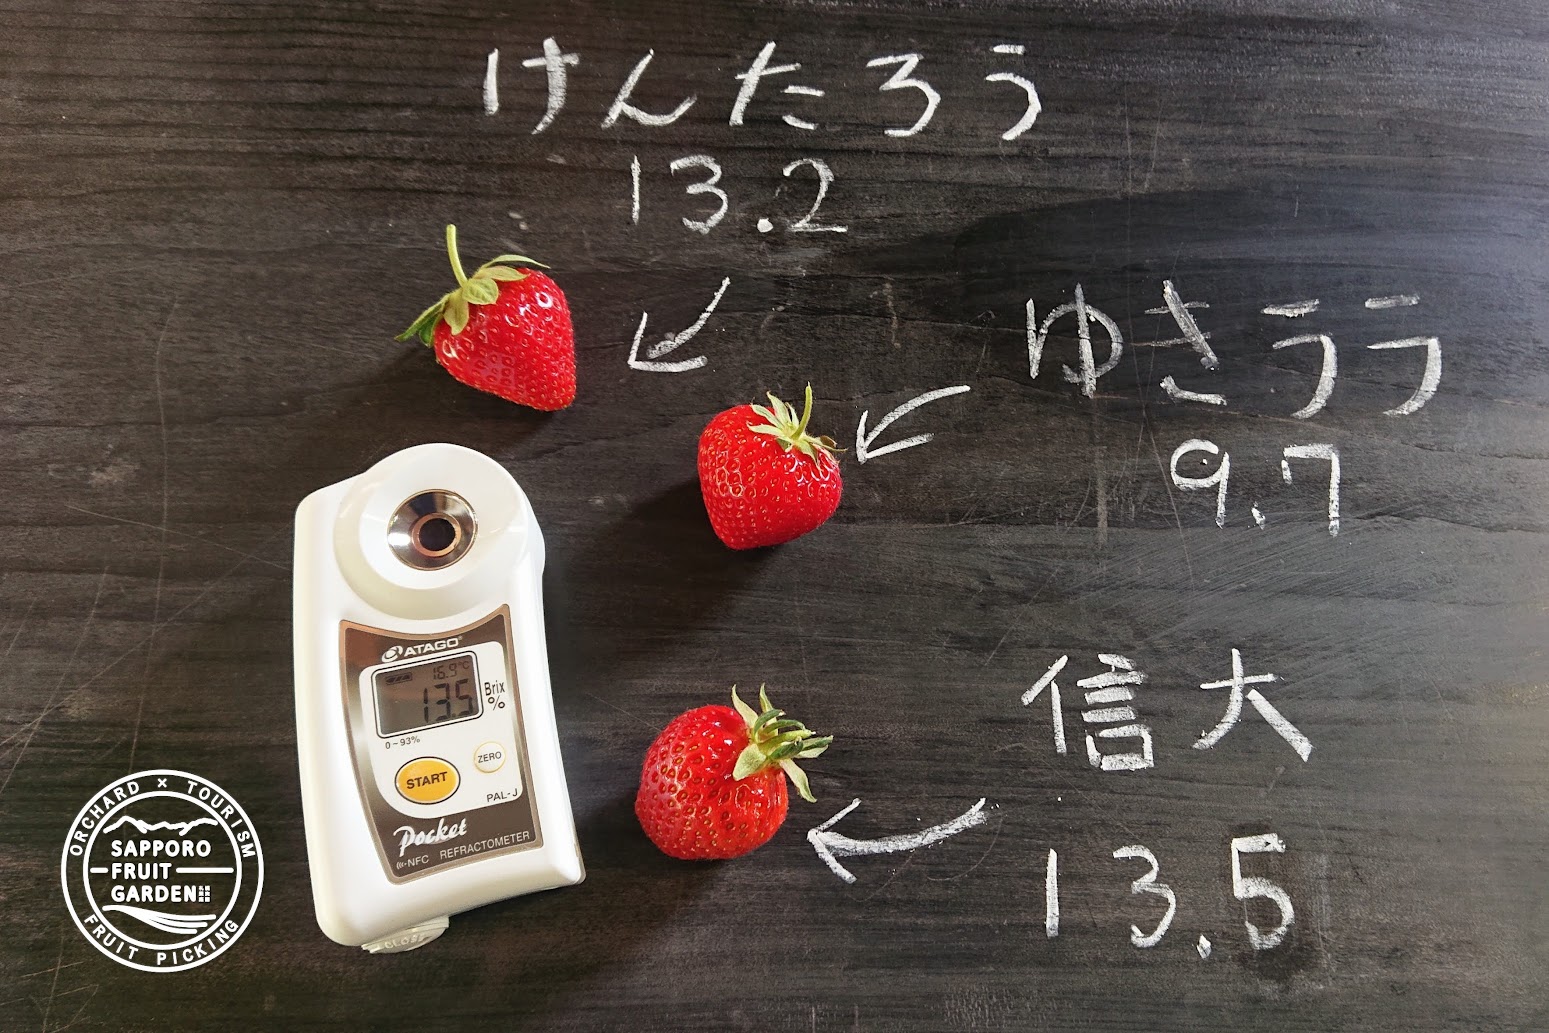 けんたろう
13.2
ゆきララ
9.7
信大
13.5
ATAGO
16.9°C
13.5
Brix
%
0-93%
START
ZERO
PAL-J
Pocket
NFC REFRACTOMETER
CLOSE
ORCHARD × TOURISM
SAPPORO
FRUIT
GARDEN
FRUIT PICKING